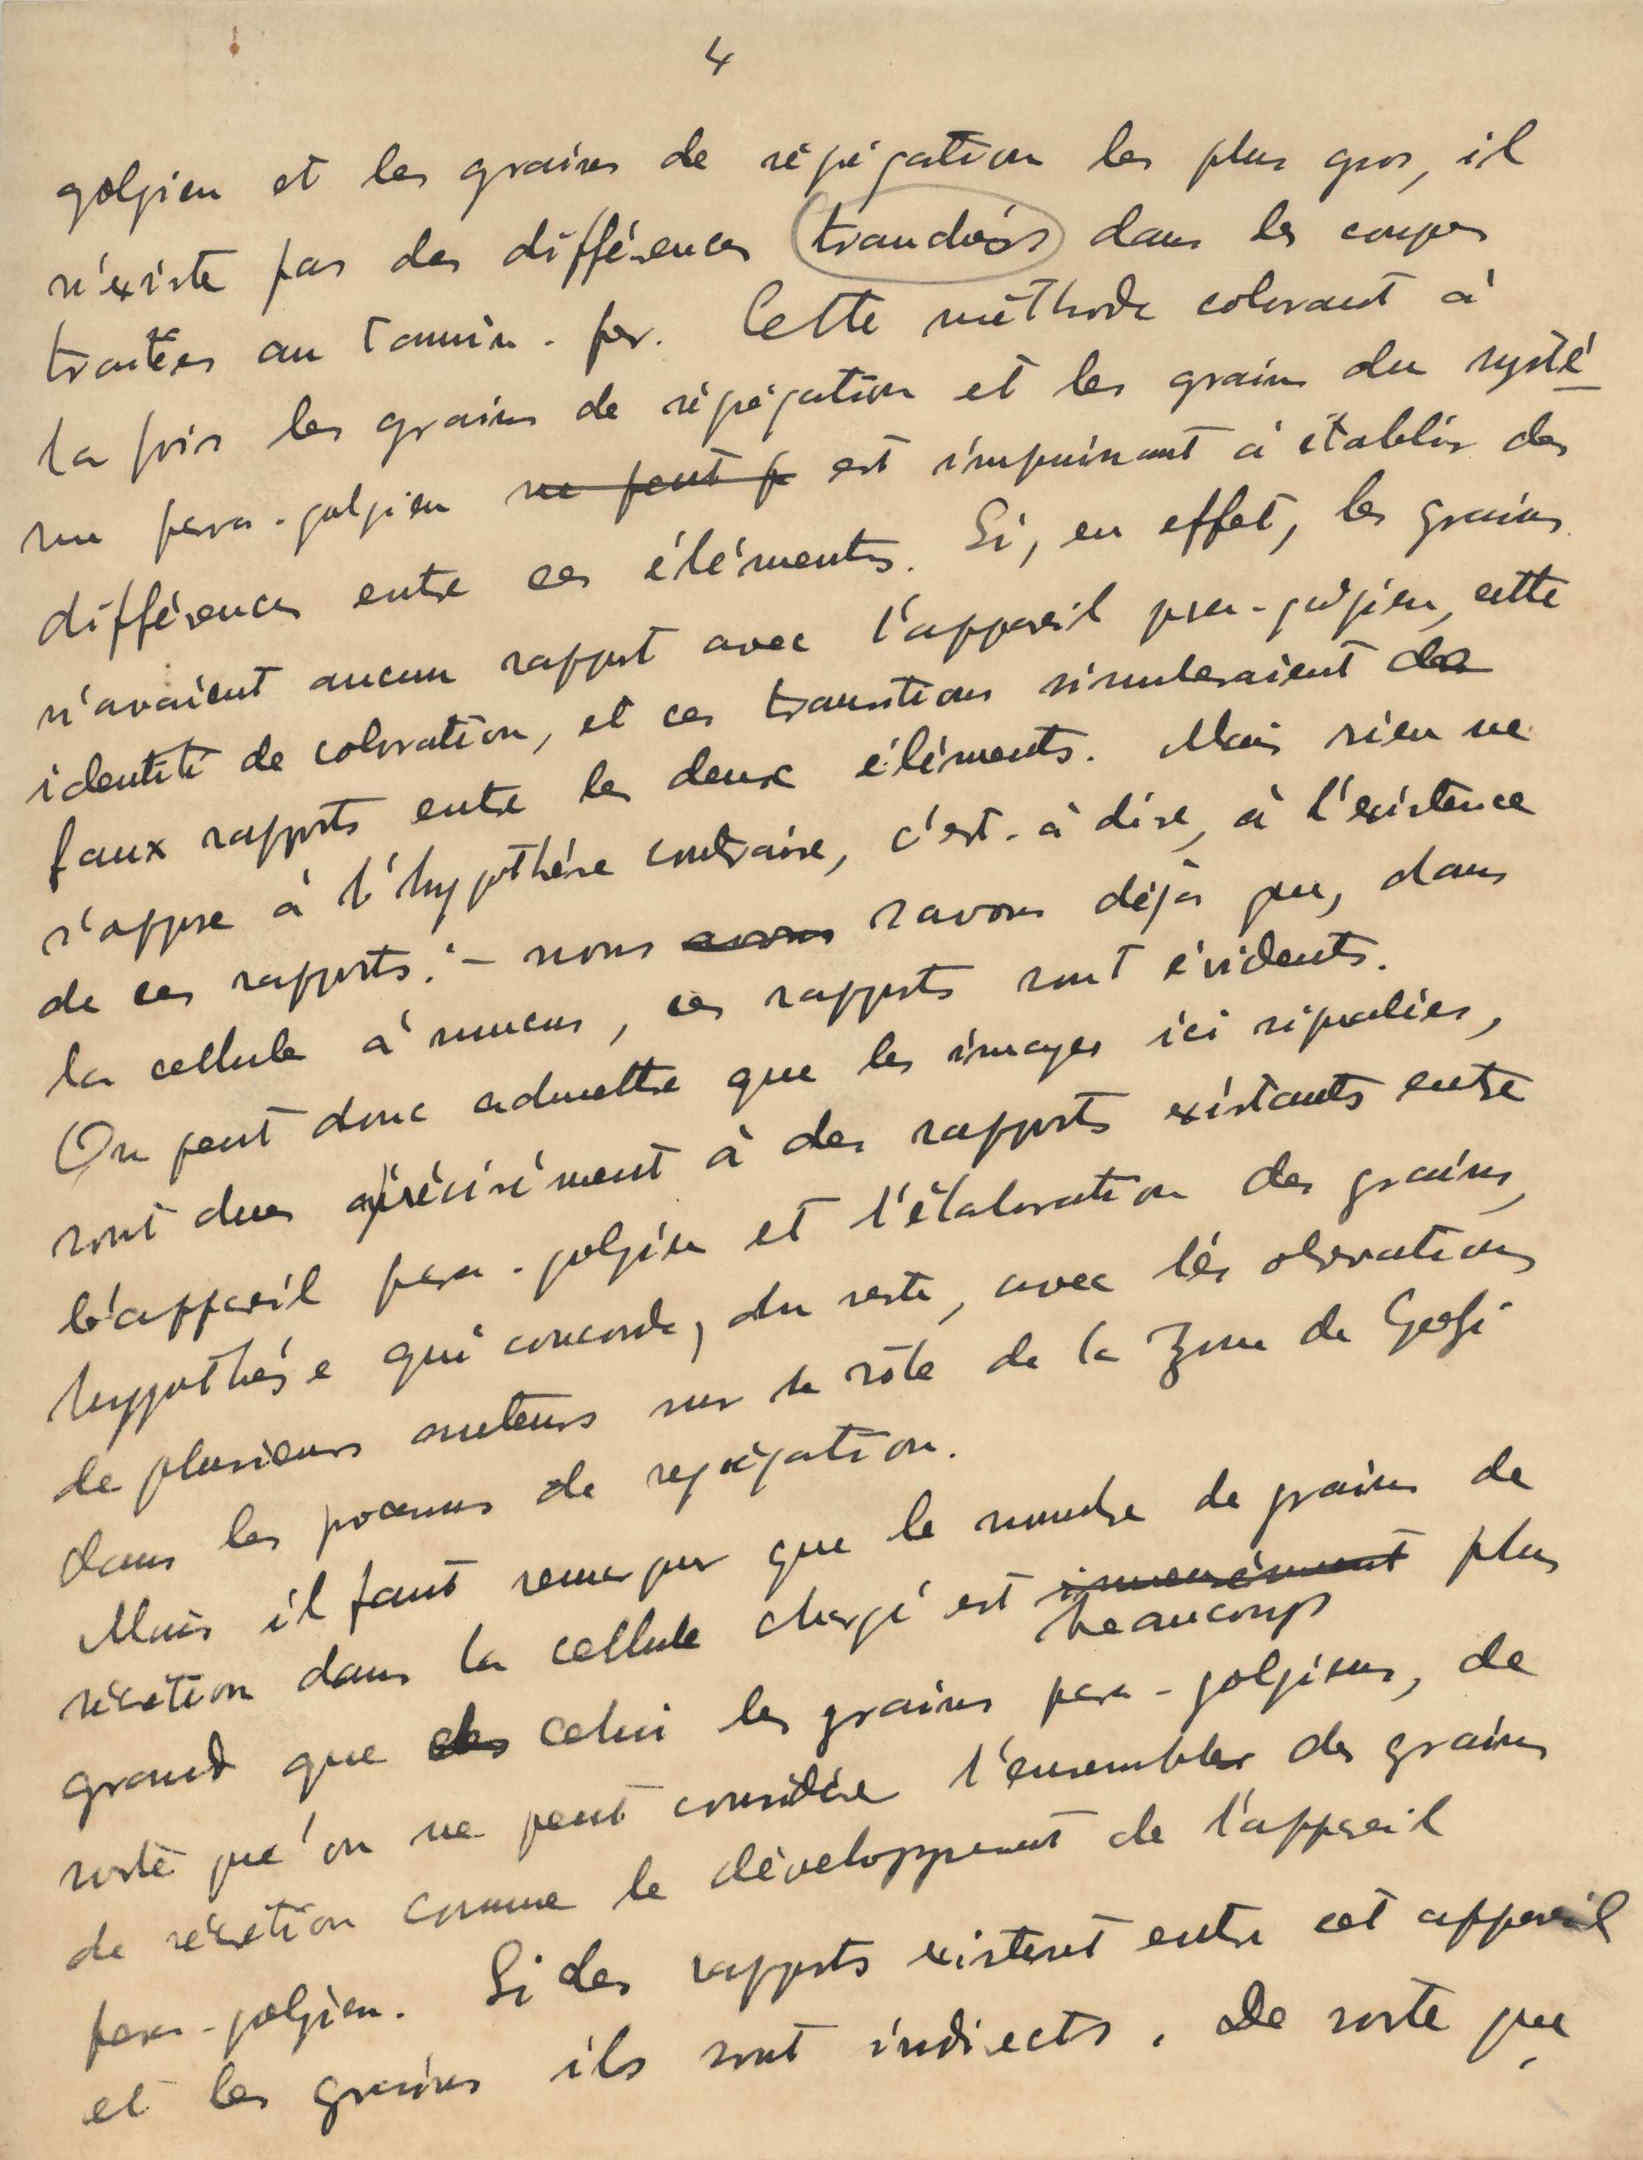 4
golgien et les grains de ségrégation les plus gros, il
n'existe pas des différences tranchées dans les coupes
traitées au tannin-fer. Cette méthode colorant à
la fois les grains de ségrégation et les grains du systè
me para-golgien ne peut p est impuissant à établir des
différences entre ces éléments. Si, en effet, les grains
n'avaient aucun rapport avec l'appareil para-golgien, cette
identité de coloration, et ces transitions simuleraient de
faux rapports entre les deux éléments. Mais rien ne
s'oppose à l'hypothèse contraire, c'est-à-dire, à l'existence
de ces rapports: - nous avons savons déjà que, dans
la cellule à mucus, ces rapports sont évidents.
On peut donc admettre que les images ici signalées,
sont dues précisément à des rapports existants entre
l'appareil para-golgien et l'élaboration des grains,
hypothèse qui concorde, du reste, avec les observations
de plusieurs auteurs sur le rôle de la zone de Golgi
dans les processus de ségrégation.
Mais il faut remarquer que le nombre de grains de
sécrétion dans la cellule chargé est immensément plus
beaucoup
grand que des celui les grains para-golgiens, de
sorte qu'on ne peut considére l'ensemble des grains
de sécrétion comme le développement de l'appareil
para-golgien. Si des rapports existent entre cet appareil
et les grains ils sont indirects. De sorte que